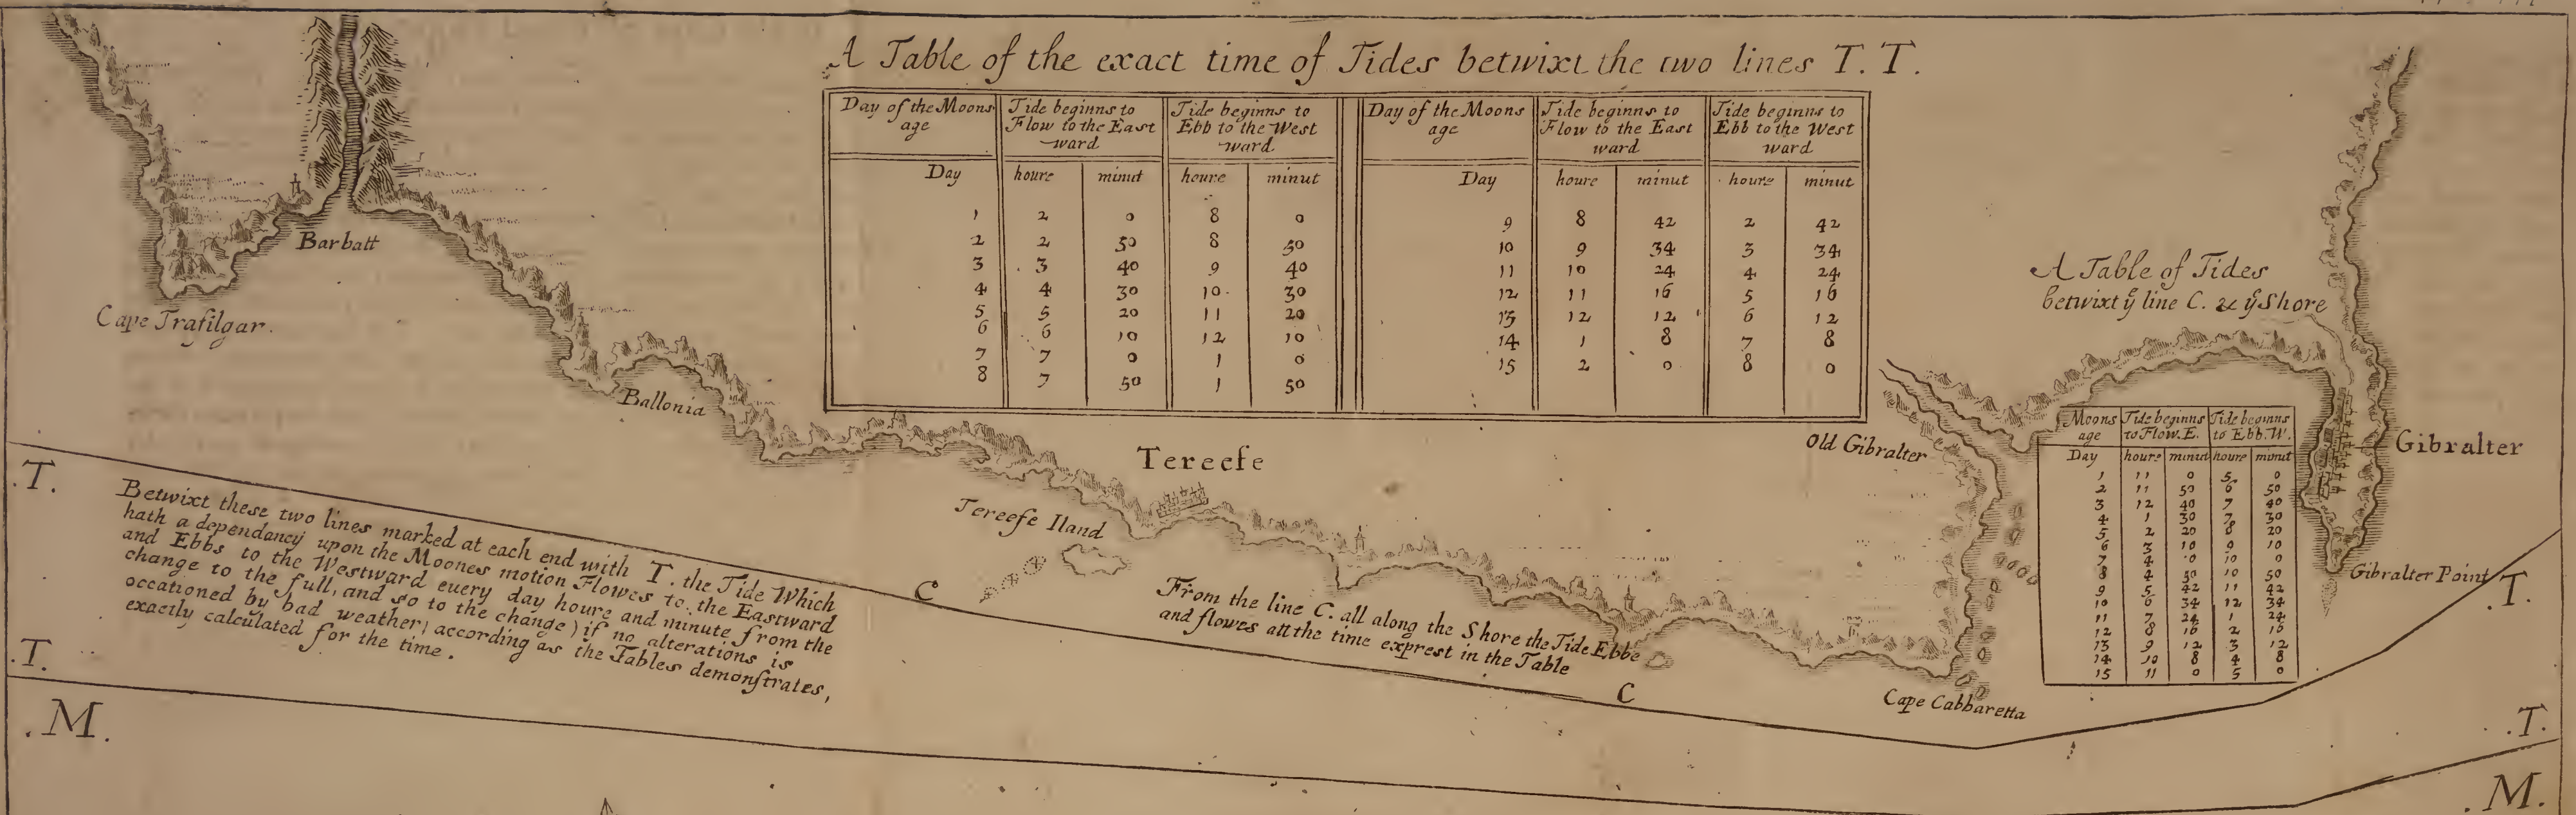 A Table of the exact time of Tides betwixt the two lines T. T.
Day of the Moons age | Tide beginns to Flow to the East ward | Tide beginns to Ebb to the West ward | Day of the Moons age | Tide beginns to Flow to the East ward | Tide beginns to Ebb to the West ward
Day | houre | minut | houre | minut | Day | houre | minut | houre | minut
1 | 2 | 0 | 8 | 0 | 9 | 8 | 42 | 2 | 42
2 | 2 | 50 | 8 | 50 | 10 | 9 | 34 | 3 | 34
3 | 3 | 40 | 9 | 40 | 11 | 10 | 24 | 4 | 24
4 | 4 | 30 | 10 | 30 | 12 | 11 | 16 | 5 | 16
5 | 5 | 20 | 11 | 20 | 13 | 12 | 12 | 6 | 12
6 | 6 | 10 | 12 | 10 | 14 | 1 | 8 | 7 | 8
7 | 7 | 0 | 1 | 0 | 15 | 2 | 0 | 8 | 0
8 | 7 | 50 | 1 | 50
Barbatt
Cape Trafilgar.
Ballonia
Tereefe
Tereefe Iland
Old Gibralter
Cape Cabbaretta
Gibralter
Gibralter Point
A Table of Tides
betwixt yͤ line C. & yͤ Shore
Moons age | Tide beginns to Flow. E. | Tide beginns to Ebb. W.
Day | houre | minut | houre | minut
1 | 11 | 0 | 5 | 0
2 | 11 | 50 | 6 | 50
3 | 12 | 40 | 7 | 40
4 | 1 | 30 | 7 | 30
5 | 2 | 20 | 8 | 20
6 | 3 | 10 | 9 | 10
7 | 4 | 0 | 10 | 0
8 | 4 | 50 | 10 | 50
9 | 5 | 42 | 11 | 42
10 | 6 | 34 | 12 | 34
11 | 7 | 24 | 1 | 24
12 | 8 | 16 | 2 | 16
13 | 9 | 12 | 3 | 12
14 | 10 | 8 | 4 | 8
15 | 11 | 0 | 5 | 0
.T.
Betwixt these two lines marked at each end with T. the Tide Which
hath a dependancy upon the Moones motion Flowes to the Eastward
and Ebbs to the Westward euery day houre and minute from the
change to the full, and so to the change) if no alterations is
occationed by bad weather) according as the Tables demonstrates,
exactly calculated for the time.
.T.
.M.
C
From the line C. all along the Shore the Tide Ebbe
and flowes att the time exprest in the Table
C
.T.
.T.
.M.